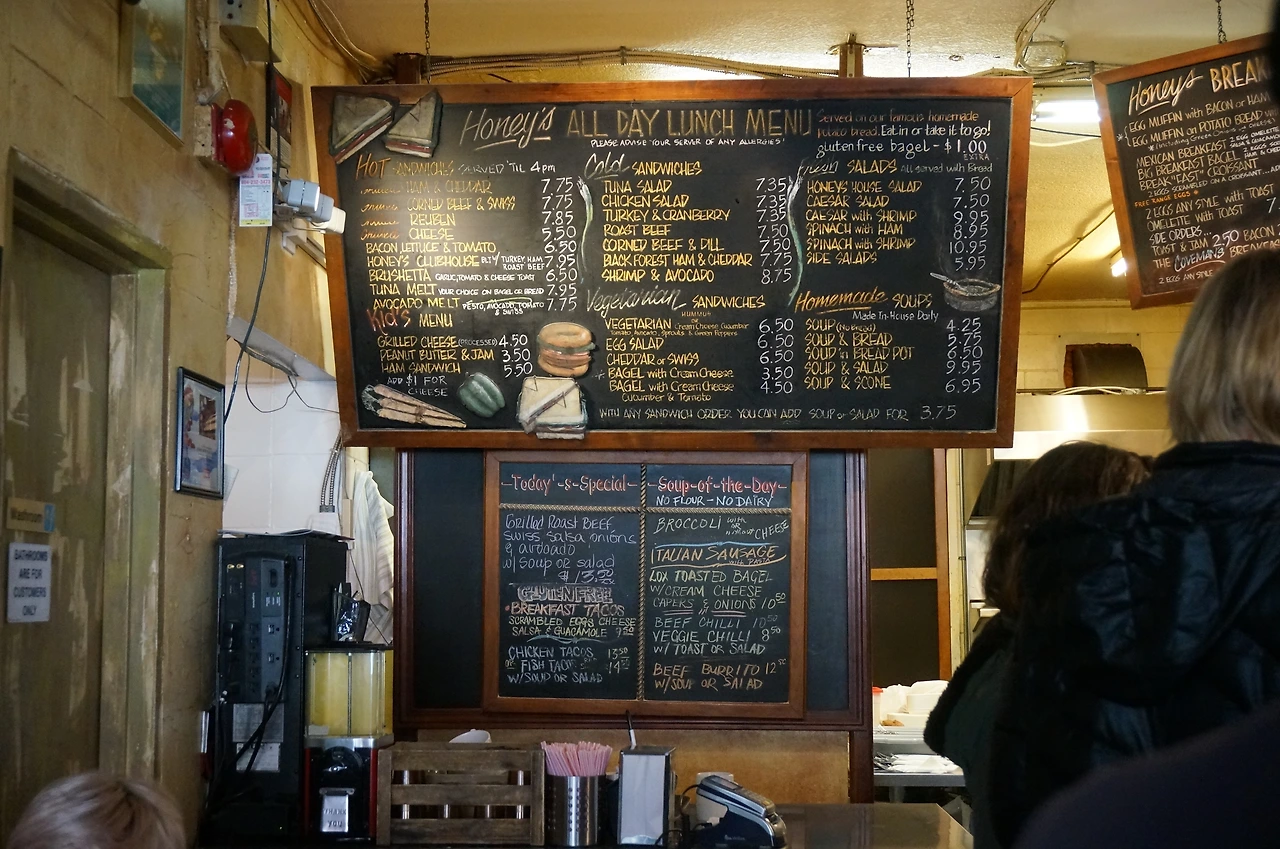 Honey's ALL DAY LUNCH MENU
PLEASE ADVISE YOUR SERVER OF ANY ALLERGIES!
Served on our famous homemade
potato bread. Eat in or take it to go!
gluten free bagel - $1.00
EXTRA
HOT SANDWICHES SERVED 'TIL 4pm
HAM & CHEDDAR 7.75
CORNED BEEF & SWISS 7.75
REUBEN 7.85
CHEESE 5.50
BACON LETTUCE & TOMATO 6.50
HONEY'S CLUBHOUSE BLT W/ TURKEY HAM ROAST BEEF 7.95
BRUSHETTA GARLIC, TOMATO & CHEESE TOAST 6.50
TUNA MELT YOUR CHOICE ON BAGEL OR BREAD 7.95
AVOCADO MELT PESTO, AVOCADO, TOMATO & SWISS 7.75
Kid's MENU
GRILLED CHEESE (PROCESSED) 4.50
PEANUT BUTTER & JAM 3.50
HAM SANDWICH 5.50
ADD $1 FOR
CHEESE
Cold SANDWICHES
TUNA SALAD 7.35
CHICKEN SALAD 7.35
TURKEY & CRANBERRY 7.35
ROAST BEEF 7.50
CORNED BEEF & DILL 7.50
BLACK FOREST HAM & CHEDDAR 7.75
SHRIMP & AVOCADO 8.75
Vegetarian SANDWICHES
HUMMUS
VEGETARIAN or Cream Cheese, Cucumber 6.50
Tomato, Avocado, Sprouts & Green Peppers
EGG SALAD 6.50
CHEDDAR or SWISS 6.50
BAGEL with Cream Cheese 3.50
BAGEL with Cream Cheese 4.50
Cucumber & Tomato
SALADS All served with Bread
HONEY'S HOUSE SALAD 7.50
CAESAR SALAD 7.50
CAESAR with SHRIMP 9.95
SPINACH with HAM 8.95
SPINACH with SHRIMP 10.95
SIDE SALADS 5.95
Homemade SOUPS
Made In-House Daily
SOUP (No Bread) 4.25
SOUP & BREAD 5.75
SOUP in BREAD POT 6.50
SOUP & SALAD 9.95
SOUP & SCONE 6.95
WITH ANY SANDWICH ORDER YOU CAN ADD SOUP or SALAD FOR 3.75
Honey's BREAK
EGG MUFFIN with BACON or HAM
EGG MUFFIN on POTATO BREAD
MEXICAN BREAKFAST
BIG BREAKFAST BAGEL
BREAK"FEAST" CROISSANT
2 EGGS SCRAMBLED ON A CROISSANT
FREE RANGE EGGS
2 EGGS ANY STYLE with TOAST 7
OMELETTE with TOAST
SIDE ORDERS...
TOAST & JAM 2.50 BACON
THE COVEMAN'S BREAKFAST
2 EGGS ANY STYLE
Today's-Special
Grilled Roast Beef
swiss, salsa, onions
& avocado
w/ soup or salad
$13.50
GLUTEN FREE
BREAKFAST TACOS
SCRAMBLED EGGS CHEESE
SALSA & GUACAMOLE 9.50
CHICKEN TACOS 13.50
or FISH TACOS 14.50
W/ SOUP OR SALAD
Soup-of-the-Day
NO FLOUR - NO DAIRY
BROCCOLI with OR without CHEESE
ITALIAN SAUSAGE
with PASTA
LOX TOASTED BAGEL
W/CREAM CHEESE
CAPERS & ONIONS 10.50
BEEF CHILLI 10.50
VEGGIE CHILLI 8.50
W/ TOAST OR SALAD
BEEF BURRITO 12.50
W/SOUP OR SALAD
Washroom
BATHROOMS
ARE FOR
CUSTOMERS
ONLY
THANK
YOU